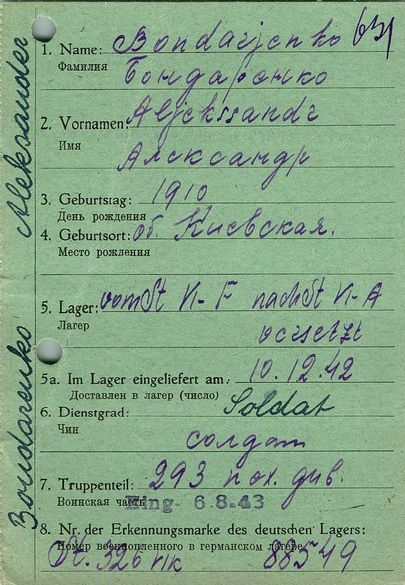 Bondarenko Aleksander
1. Name: Bondarjenko 631
Фамилия Бондаренко
2. Vornamen: Aljekssandr
Имя
Александр
3. Geburtstag: 1910
День рождения
4. Geburtsort: об. Киевская.
Место рождения
5. Lager: vom St VI-F nach St VI-A
Лагер versetzt
5a. Im Lager eingeliefert am: 10.12.42
Доставлен в лагер (число)
6. Dienstgrad: Soldat
Чин солдат
7. Truppenteil: 293 пох. див.
Воинская часть Eing. 6.8.43
8. Nr. der Erkennungsmarke des deutschen Lagers:
Номер военнопленного в германском лагере
St. 326 VIK 88549